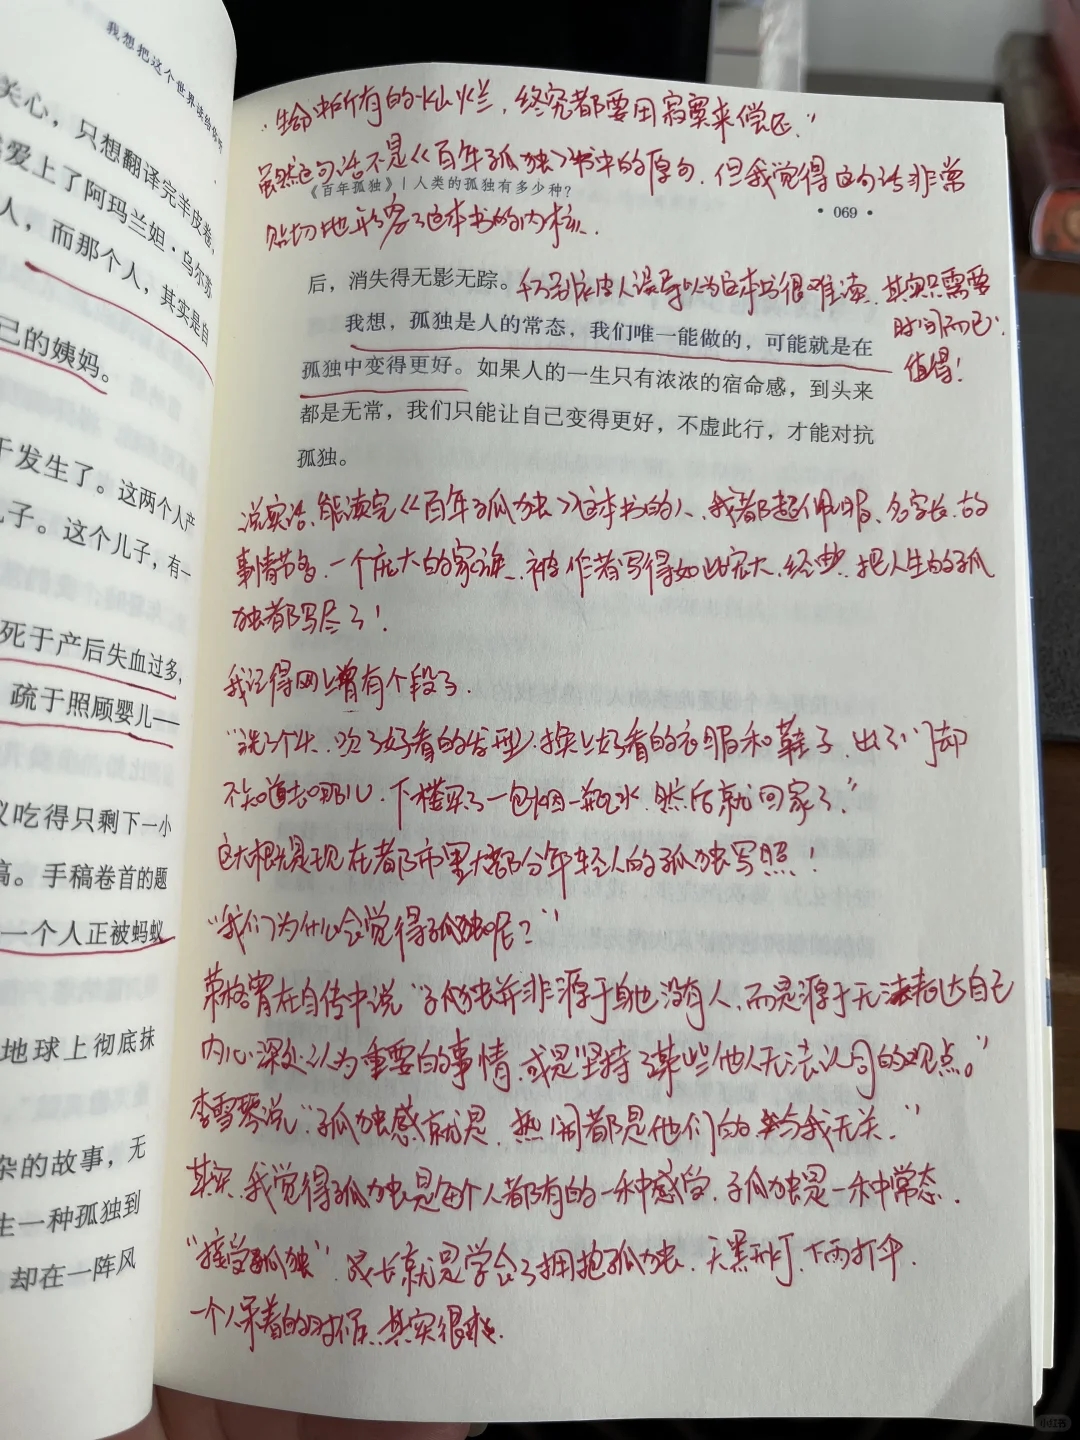 我想把这个世界读给你听
关心，只想翻译完羊皮卷，
爱上了阿玛兰妲·乌尔苏
人，而那个人，其实是自
己的姨妈。
于发生了。这两个人产
儿子。这个儿子，有一
死于产后失血过多，
疏于照顾婴儿——
蚁吃得只剩下一小
高。手稿卷首的题
一个人正被蚂蚁
地球上彻底抹
杂的故事，无
生一种孤独到
却在一阵风
“生命中所有的灿烂，终究都要用寂寞来偿还。”
虽然这句话不是《百年孤独》书中的原句，但我觉得这句话非常
《百年孤独》| 人类的孤独有多少种?
• 069 •
贴切地形容了这本书的内核。
后，消失得无影无踪。
千万别被人误导以为这本书很难读，其实只需要
时间而已，
值得！
我想，孤独是人的常态，我们唯一能做的，可能就是在
孤独中变得更好。如果人的一生只有浓浓的宿命感，到头来
都是无常，我们只能让自己变得更好，不虚此行，才能对抗
孤独。
说实话，能读完《百年孤独》这本书的人，我都超佩服，名字长，故
事情节多，一个庞大的家族，被作者写得如此宏大、经典，把人生的孤
独都写尽了！
我记得网上曾有个段子，
“洗了个头，吹了好看的发型，换上好看的衣服和鞋子，出了门却
不知道去哪儿，下楼买了一包烟一瓶水，然后就回家了。”
这大概就是现在都市里大部分年轻人的孤独写照！
“我们为什么会觉得孤独呢？”
荣格曾在自传中说“孤独并非源于身边没有人，而是源于无法表达自己
内心深处认为重要的事情，或是坚持了某些他人无法认同的观点。”
李雪琴说“孤独感就是，热闹都是他们的，与我无关。”
其实，我觉得孤独是每个人都有的一种感受，孤独是一种常态，
“接受孤独”，成长就是学会了拥抱孤独，天黑开灯，下雨打伞，
一个人呆着的时候，其实很爽。
小红书